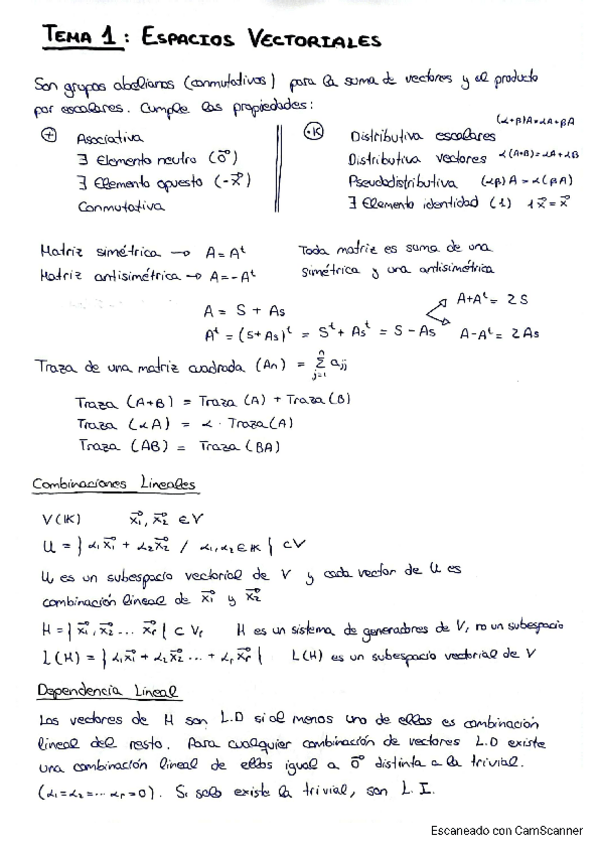 TEMA 1: ESPACIOS VECTORIALES
Son grupos abelianos (conmutativos) para la suma de vectores y el producto
por escalares. Cumple las propiedades:
(+) Asociativa
∃ Elemento neutro (0⃗)
∃ Elemento opuesto (-x⃗)
Conmutativa
(·K) Distributiva escalares (α+β)A=αA+βA
Distributiva vectores α(A+B)=αA+αB
Pseudodistributiva (αβ)A = α(βA)
∃ Elemento identidad (1) 1x⃗=x⃗
Matriz simétrica → A=Aᵗ
Matriz antisimétrica → A=-Aᵗ
Toda matriz es suma de una
simétrica y una antisimétrica
A = S + As
Aᵗ = (S+As)ᵗ = Sᵗ + Asᵗ = S - As
A+Aᵗ = 2S
A-Aᵗ = 2As
Traza de una matriz cuadrada (An) = Σ ajj
n
j=1
Traza (A+B) = Traza (A) + Traza (B)
Traza (αA) = α · Traza(A)
Traza (AB) = Traza (BA)
Combinaciones Lineales
V(K) x₁⃗, x₂⃗ ∈V
U = {α₁x₁⃗ + α₂x₂⃗ / α₁,α₂∈K} ⊂V
U, es un subespacio vectorial de V y cada vector de U es
combinación lineal de x₁⃗ y x₂⃗
H = {x₁⃗, x₂⃗ ... xᵣ⃗} ⊂ V, H es un sistema de generadores de V, no un subespacio
L(H) = {α₁x₁⃗ + α₂x₂⃗ ... + αᵣxᵣ⃗} L(H) es un subespacio vectorial de V
Dependencia Lineal
Los vectores de H son L.D si al menos uno de ellos es combinación
lineal del resto. Para cualquier combinación de vectores L.D existe
una combinación lineal de ellos igual a 0⃗ distinta a la trivial.
(α₁=α₂=... αᵣ=0). Si solo existe la trivial, son L.I.
Escaneado con CamScanner